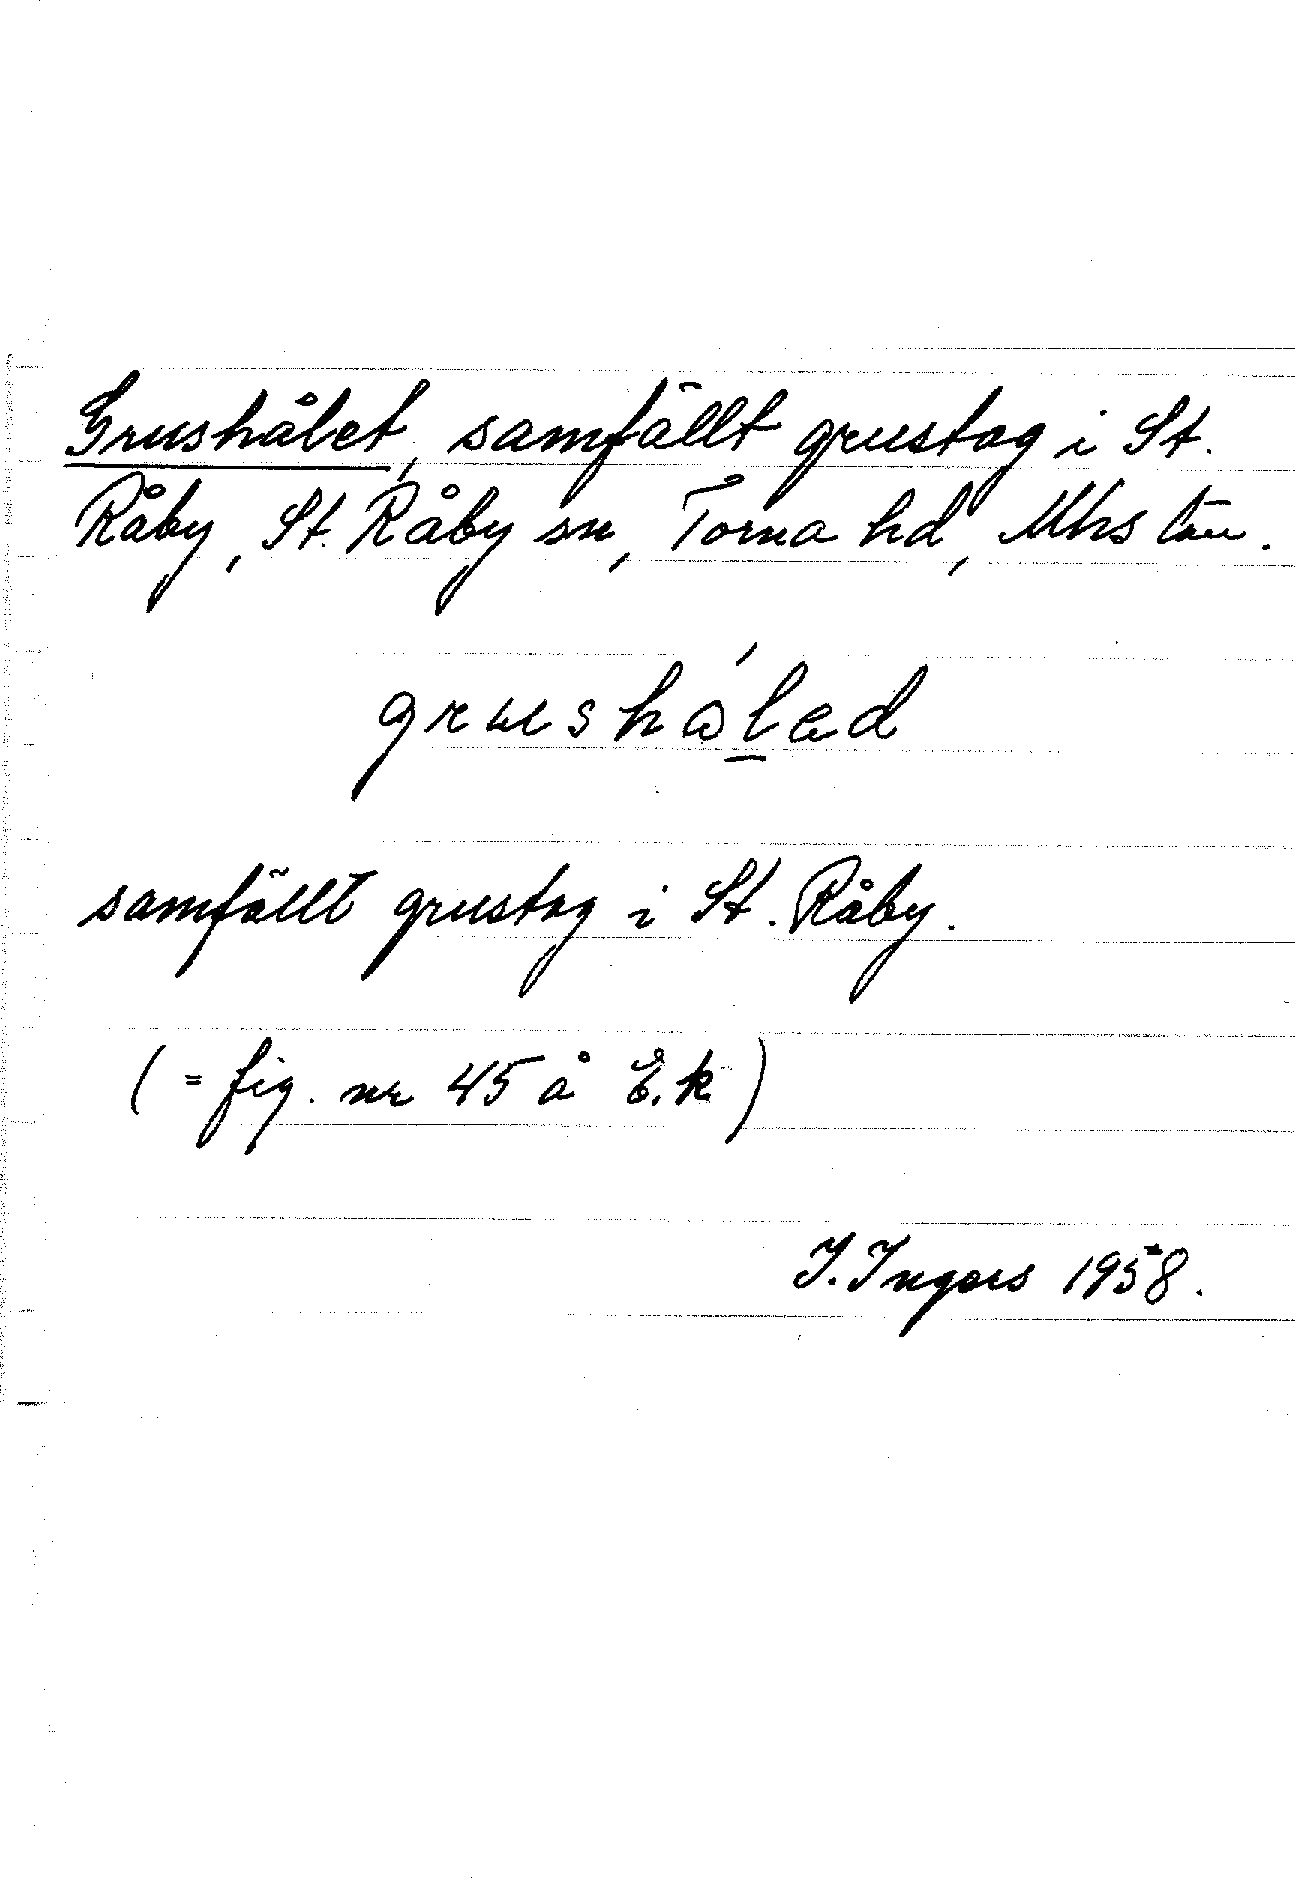 Grushålet, samfällt grustag i St.
Råby, St. Råby sn, Torna hd, Mhs län.
samfällt grustag i St. Råby.
( = fig. nr 45 å E.k. )
I. Ingers 1958.